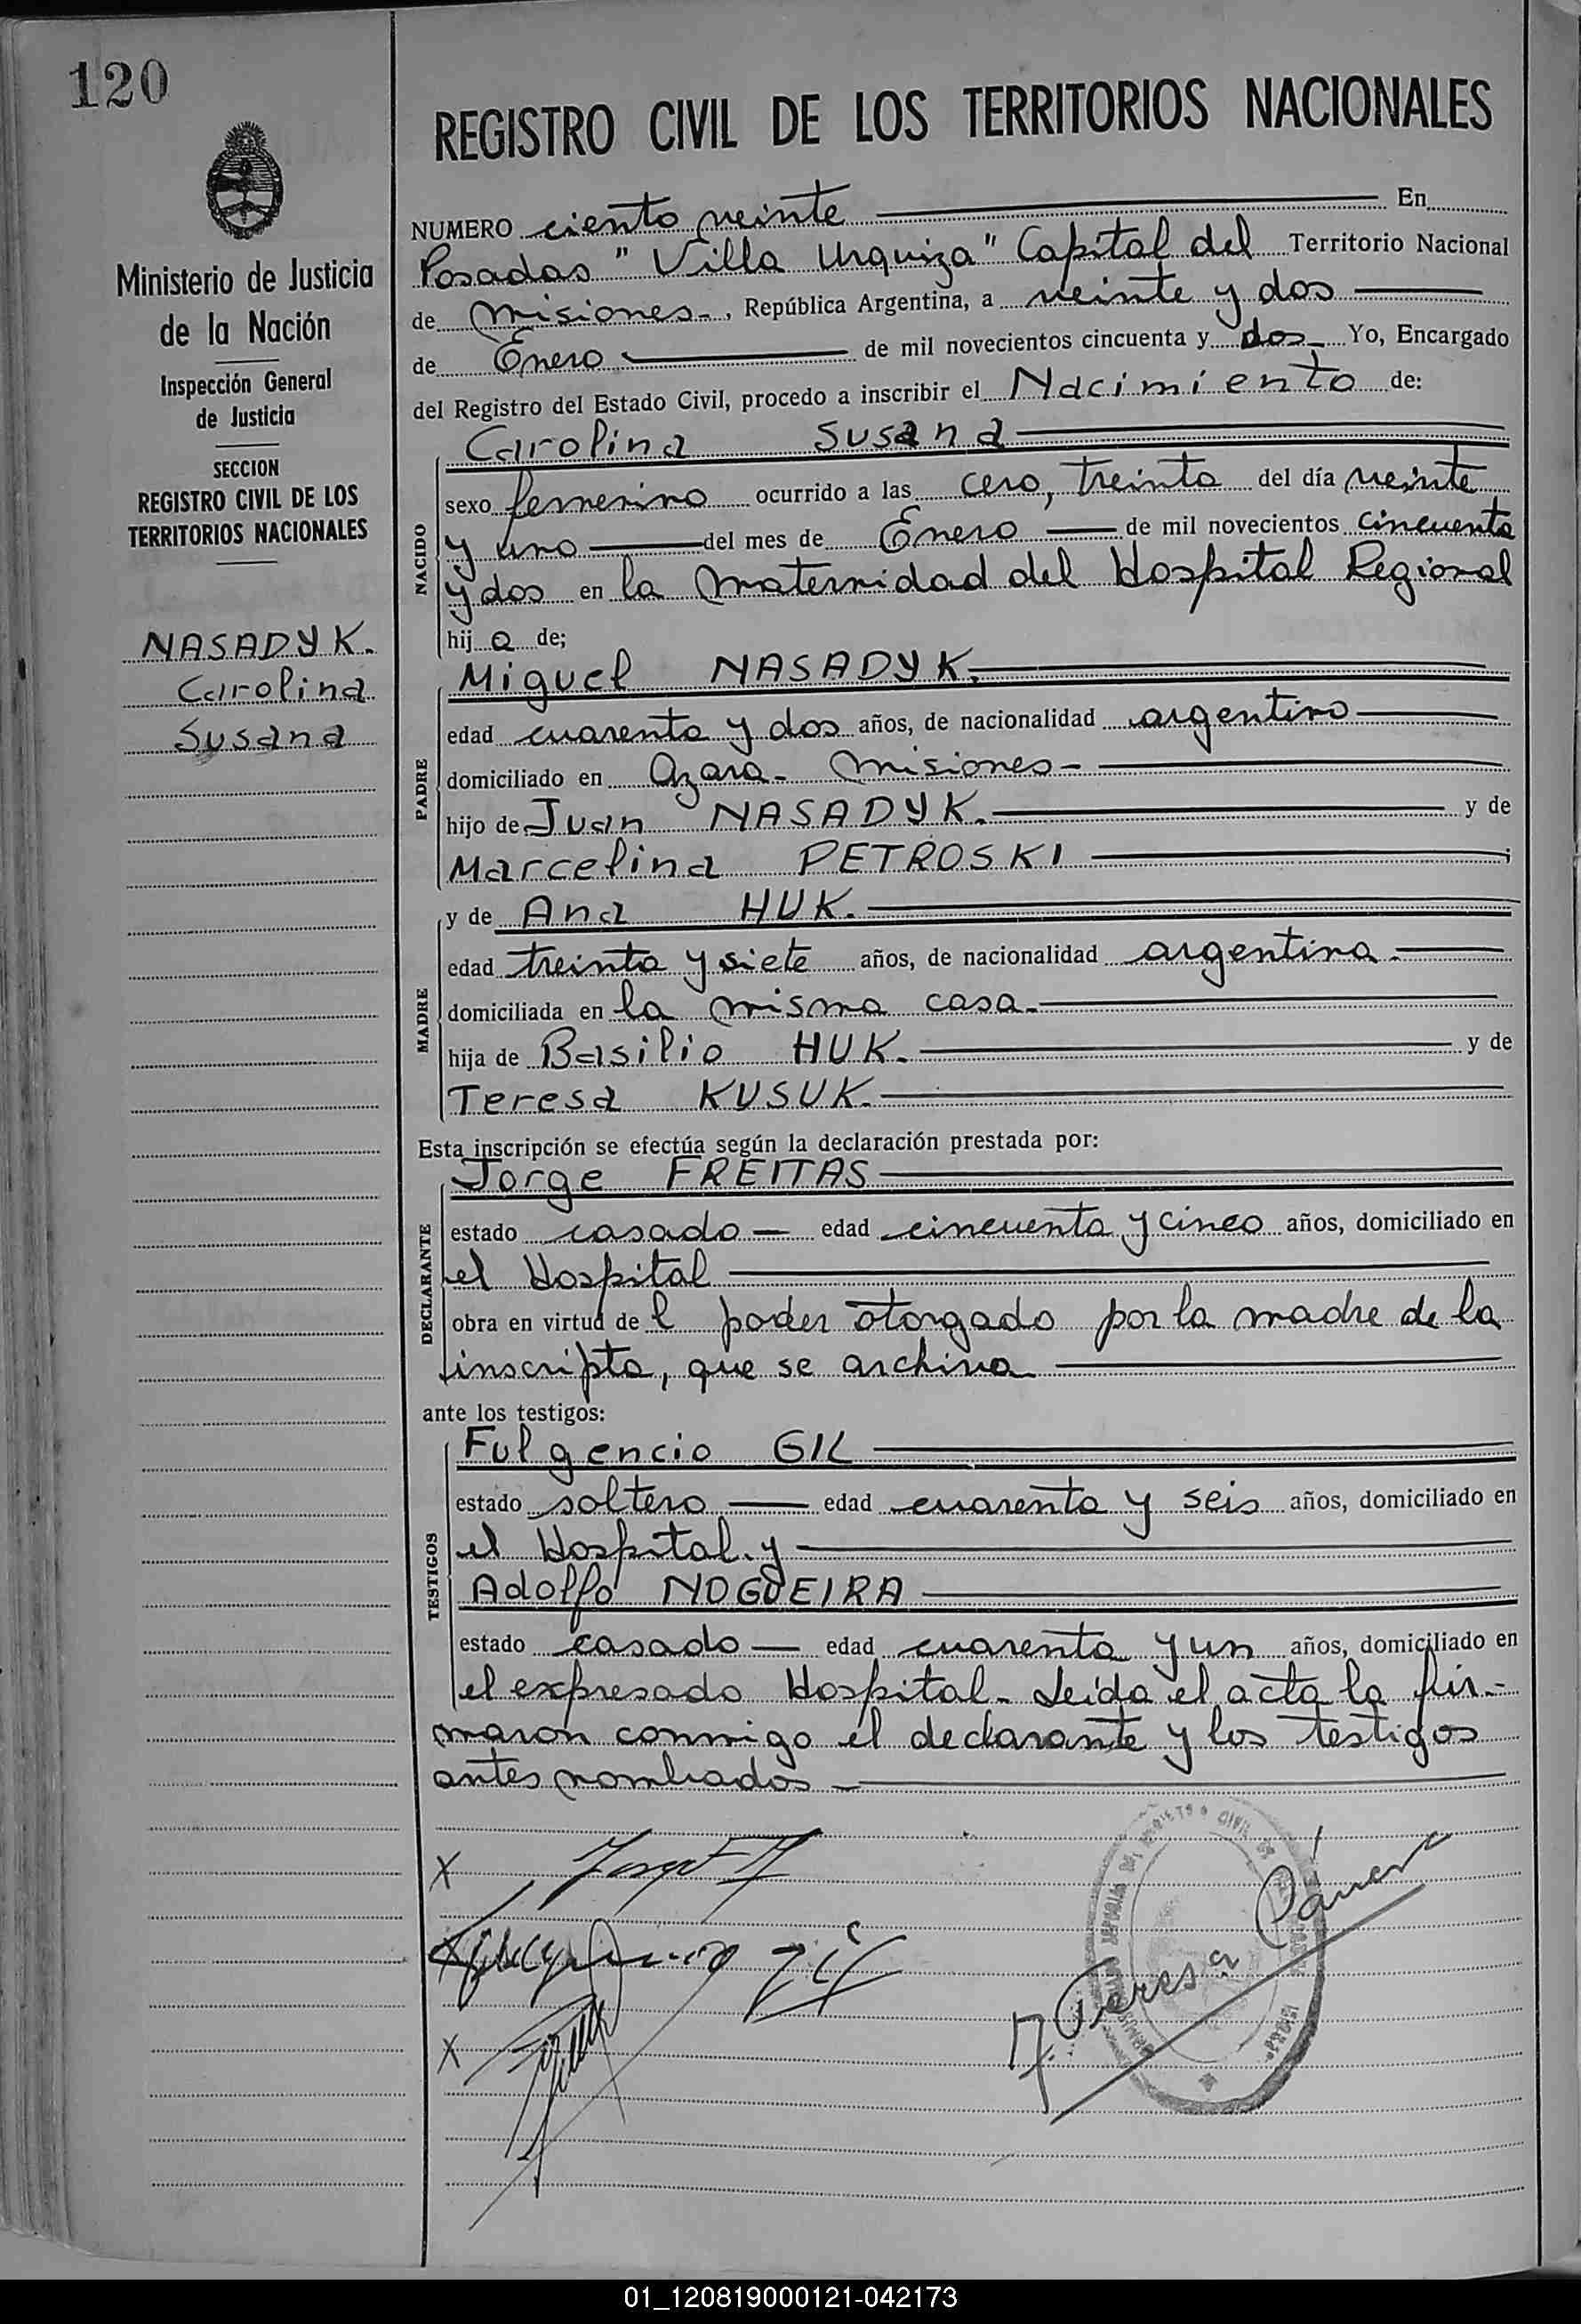 120
REGISTRO CIVIL DE LOS TERRITORIOS NACIONALES
Ministerio de Justicia
de la Nación
Inspección General
de Justicia
SECCION
REGISTRO CIVIL DE LOS
TERRITORIOS NACIONALES
NASADYK.
Carolina
Susana
NUMERO ciento veinte En
Posadas "Villa Urquiza" Capital del Territorio Nacional
de Misiones-, República Argentina, a veinte y dos
de Enero de mil novecientos cincuenta y dos Yo, Encargado
del Registro del Estado Civil, procedo a inscribir el Nacimiento de:
NACIDO
Carolina Susana
sexo femenino ocurrido a las cero, treinta del día veinte
y uno del mes de Enero de mil novecientos cincuenta
y dos en la Maternidad del Hospital Regional
hij a de;
PADRE
Miguel NASADYK.
edad cuarenta y dos años, de nacionalidad argentino
domiciliado en Azara- Misiones-
hijo de Juan NASADYK. y de
Marcelina PETROSKI ;
MADRE
y de Ana HUK.
edad treinta y siete años, de nacionalidad argentina.
domiciliada en la misma casa.
hija de Basilio HUK. y de
Teresa KUSUK.
Esta inscripción se efectúa según la declaración prestada por:
DECLARANTE
Jorge FREITAS
estado casado edad cincuenta y cinco años, domiciliado en
el Hospital
obra en virtud de l poder otorgado por la madre de la
inscripta, que se archiva
ante los testigos:
TESTIGOS
Fulgencio GIL
estado soltero edad cuarenta y seis años, domiciliado en
el Hospital. y
Adolfo NOGUEIRA
estado casado edad cuarenta y un años, domiciliado en
el expresado Hospital. Leída el acta la fir-
maron conmigo el declarante y los testigos
antes nombrados
X
X
X
Teresa
01_120819000121-042173